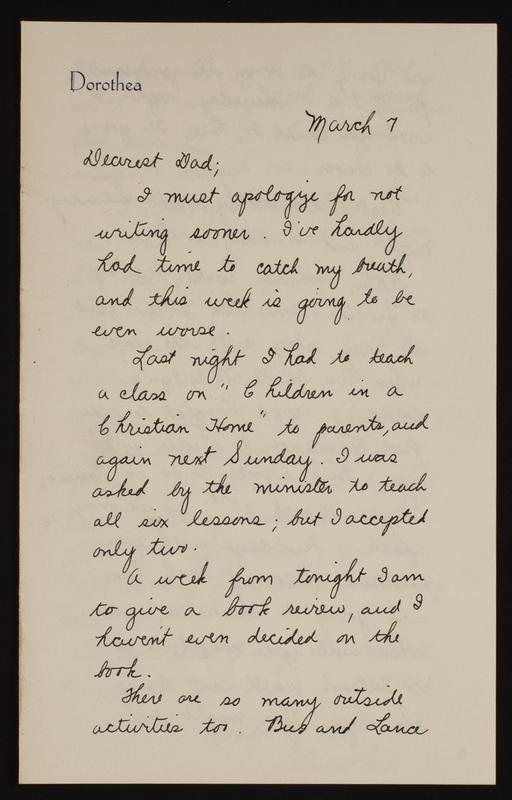 Dorothea
March 7
Dearest Dad;
I must apologize for not
writing sooner. I've hardly
had time to catch my breath,
and this week is going to be
even worse.
Last night I had to teach
a class on "Children in a
Christian Home" to parents, and
again next Sunday. I was
asked by the minister to teach
all six lessons; but I accepted
only two.
A week from tonight I am
to give a book review, and I
haven't even decided on the
book.
There are so many outside
activities too. Bud and Lance